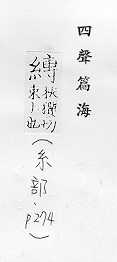 四聲篇海
縛
切
束 也
(糸部、p274)